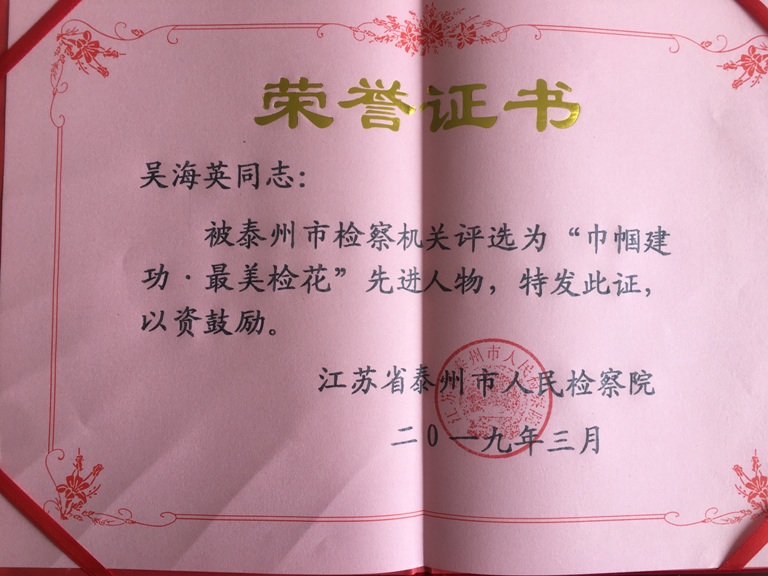 荣誉证书
吴海英同志：
被泰州市检察机关评选为“巾帼建
功·最美检花”先进人物，特发此证，
以资鼓励。
江苏省泰州市人民检察院
二〇一九年三月
江苏省泰州市人民检察院